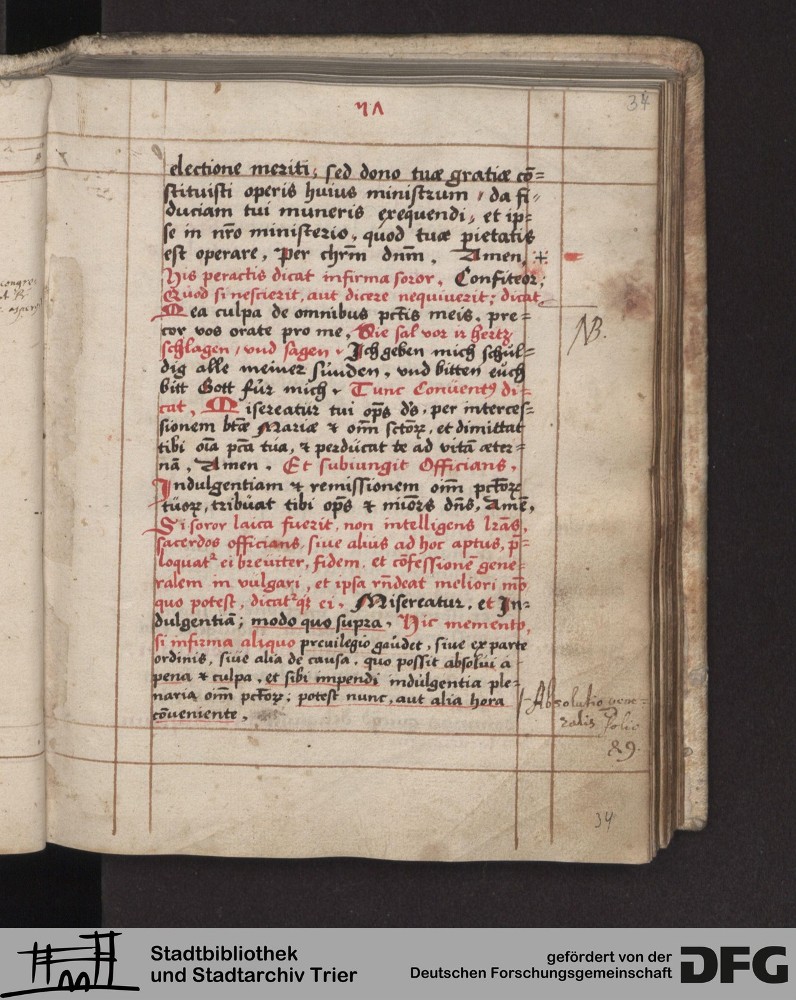 34
electione meriti, sed dono tuæ gratiæ cō=
stituisti operis huius ministrum, da fi=
duciam tui muneris exequendi, et ip=
se in nr̄o ministerio, quod tuæ pietatis
est operare, Per chrm̄ dnm̄. Amen. +
His peractis dicat infirma soror, Confiteor,
Quod si nescierit, aut dicere nequiuerit; dicat,
Mea culpa de omnibus pctīs meis, pre=
cor vos orate pro me, Sie sal vor ir hertz
schlagen, vnd sagen. Ich geben mich schül=
dig alle meiner sünden, vnd bitten eüch
bitt Gott für mich. Tunc Conüentꝰ di=
cat, Misereatur tui op̄s ds̄, per interces=
sionem btǣ Mariæ & om̄ sctōꝝ, et dimittat
tibi oīa pcc̄a tua, & perdücat te ad vitā æter=
nā, Amen. Et subiungit Officians,
Indulgentiam & remissionem oīm pctōꝝ
tüoꝝ, tribüat tibi op̄s & miōrs dn̄s, Amē,
Si soror laica fuerit, non intelligens lrās,
sacerdos officians, siue aliüs ad hoc aptus, p̄=
loquat᷑ ei breuiter, fidem, et cōfessionē gene=
ralem in vulgari, et ipsa rn̄deat meliori mō
quo potest, dicat᷑ ei, Misereatur, et In=
dulgentiā; modo quo supra, Hic memento,
si infirma aliquo preuilegio gaüdet, siue ex parte
ordinis, siüe alia de causa, quo possit absolui a
pena & culpa, et sibi impendi indülgentia ple=
naria oīm pctōꝝ; potest nunc, aut alia hora
cōueniente,
NB.
Absolutio gene=
ralis folio
89.
34
Stadtbibliothek
und Stadtarchiv Trier
gefördert von der
Deutschen Forschungsgemeinschaft
DFG